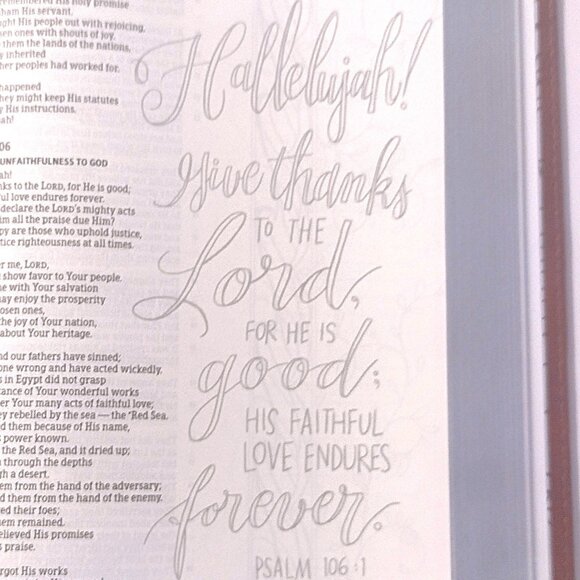 remembered His holy promise
ham His servant.
ught His people out with rejoicing,
sen ones with shouts of joy.
them the lands of the nations,
inherited
her peoples had worked for.
happened
they might keep His statutes
His instructions.
06
UNFAITHFULNESS TO GOD
ks to the LORD, for He is good;
ul love endures forever.
declare the LORD's mighty acts
im all the praise due Him?
py are those who uphold justice,
tice righteousness at all times.
er me, LORD,
show favor to Your people.
e with Your salvation
ay enjoy the prosperity
osen ones,
the joy of Your nation,
about Your heritage.
d our fathers have sinned;
one wrong and have acted wickedly.
s in Egypt did not grasp
tance of Your wonderful works
er Your many acts of faithful love;
ey rebelled by the sea — the *Red Sea.
d them because of His name,
power known.
the Red Sea, and it dried up;
through the depths
gh a desert.
em from the hand of the adversary;
d them from the hand of the enemy.
ed their foes;
hem remained.
elieved His promises
praise.
rgot His works
Hallelujah!
Give thanks
TO THE
Lord,
FOR HE IS
good;
HIS FAITHFUL
LOVE ENDURES
forever.
PSALM 106:1